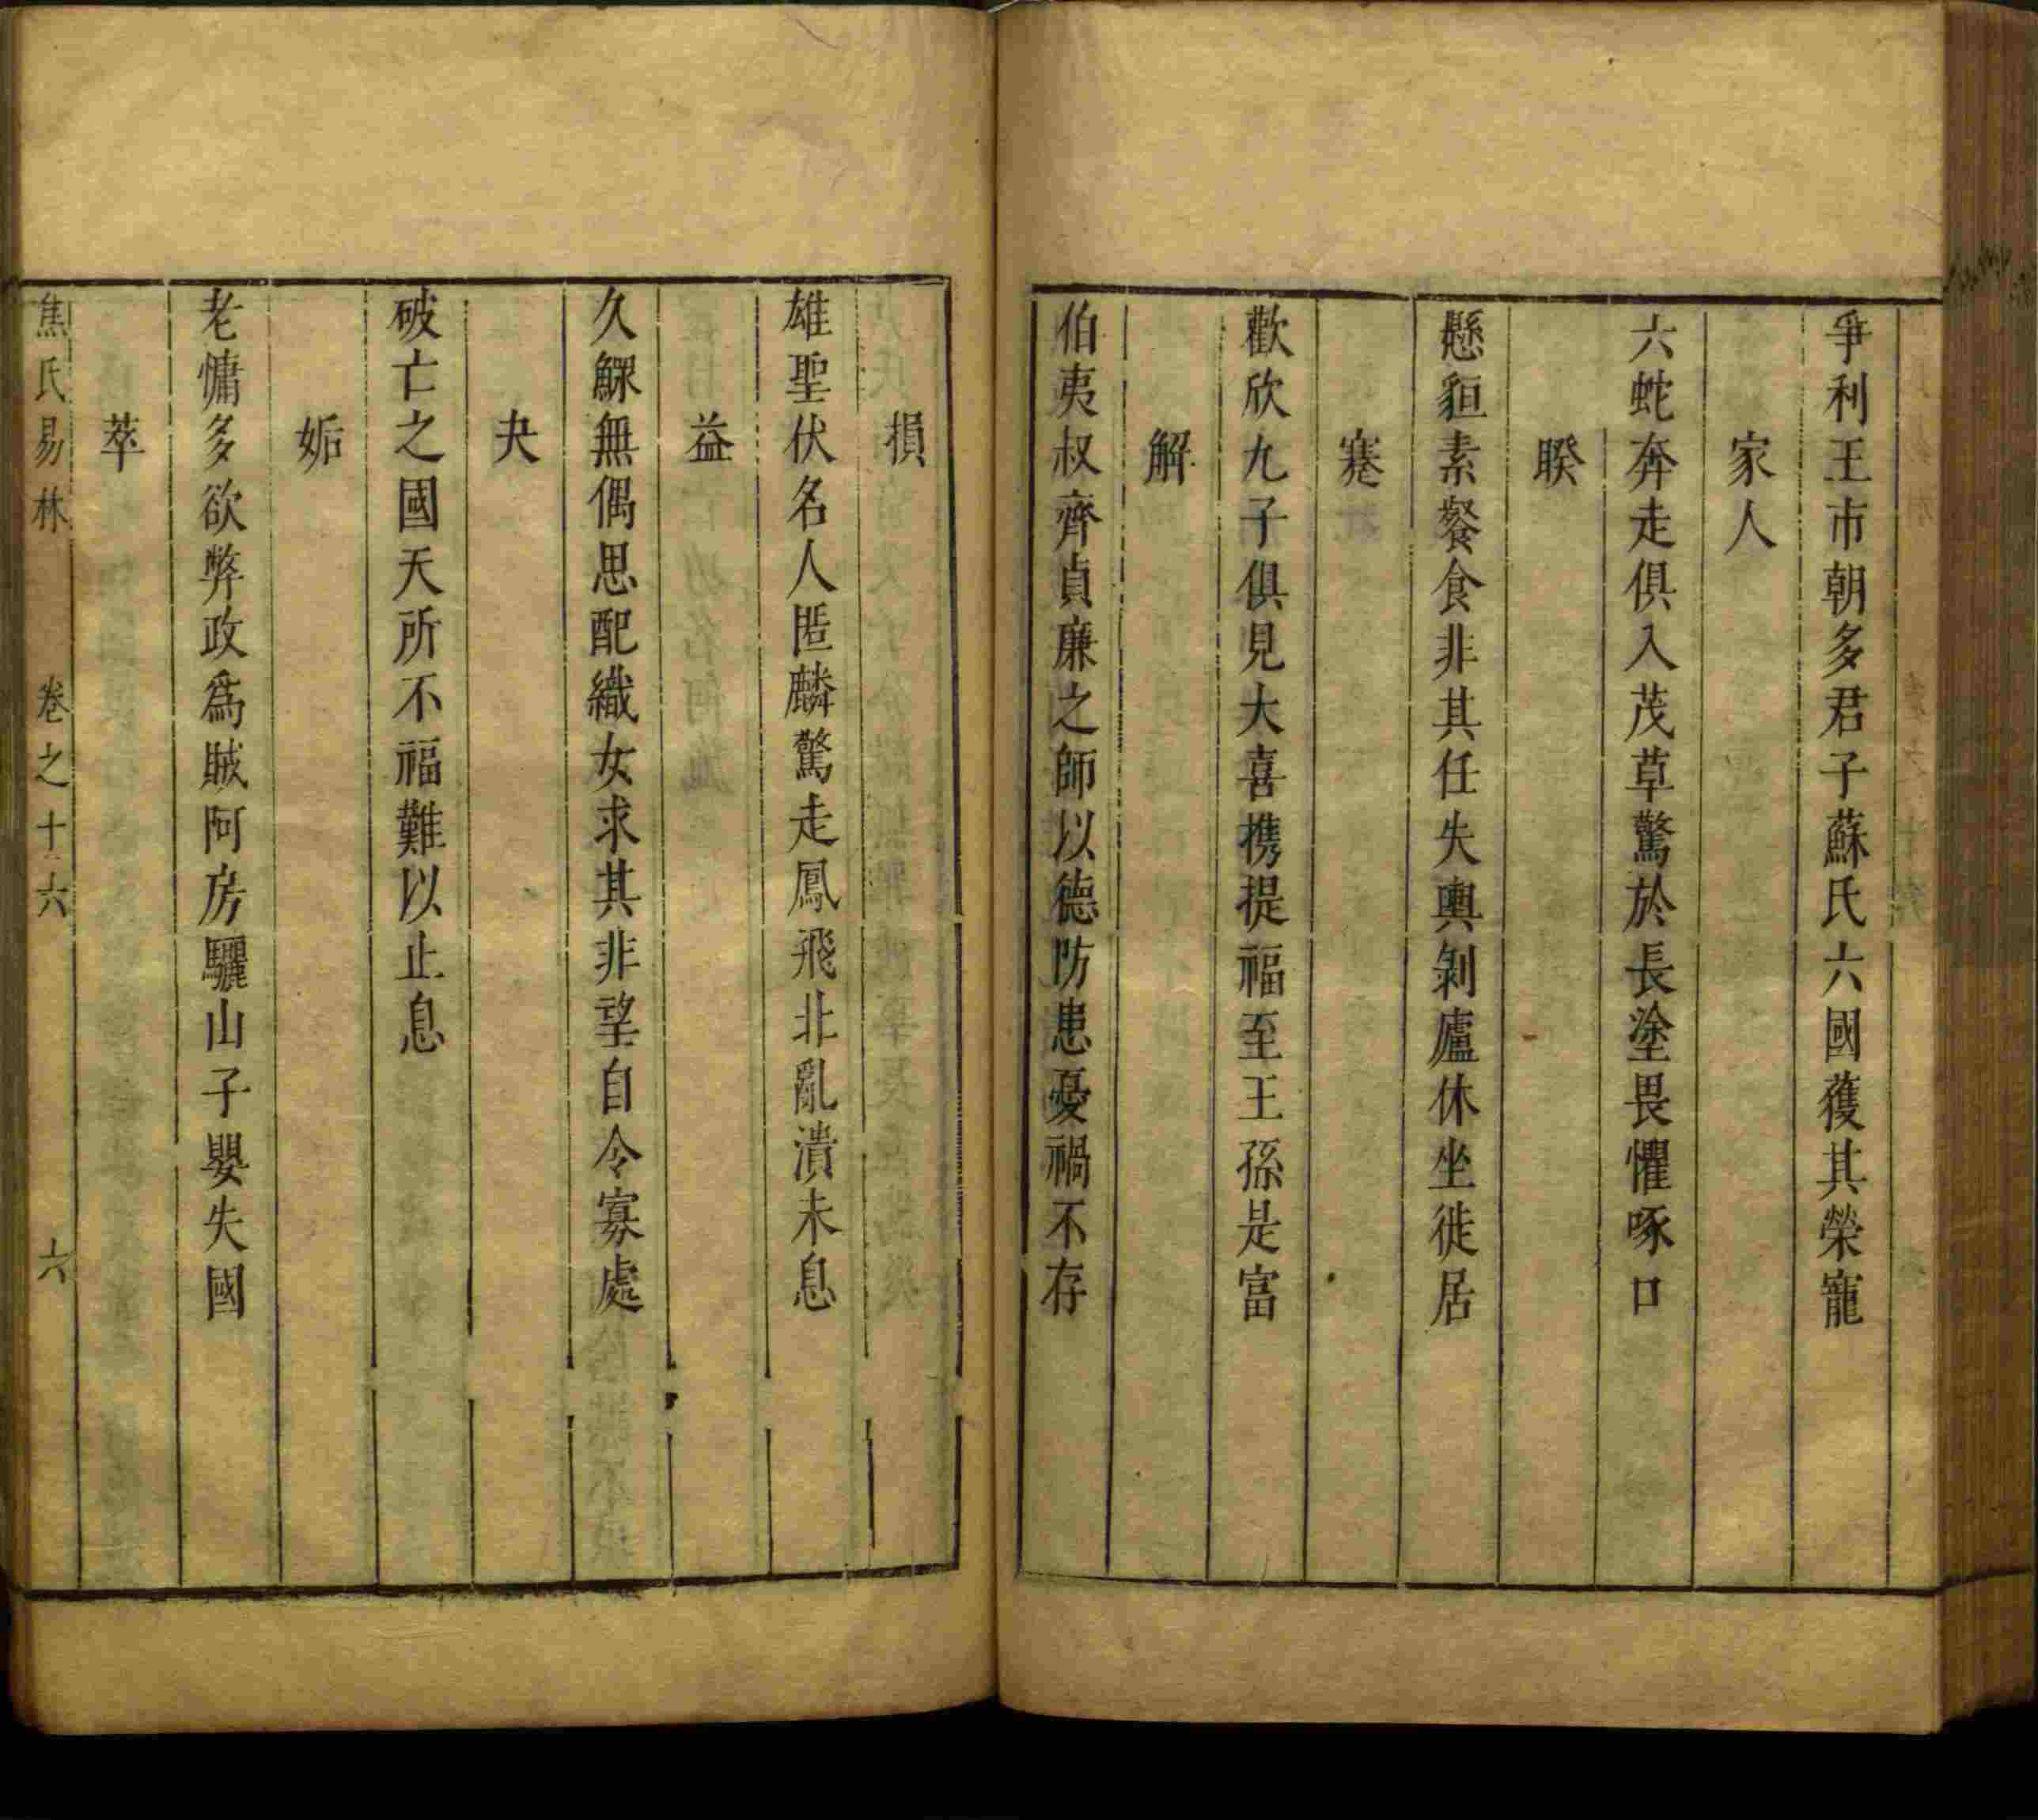 爭利王市朝多君子蘇氏六國獲其榮寵
家人
六蛇奔走俱入茂草驚於長塗畏懼啄口
睽
懸貆素餐食非其任失輿剝廬休坐徙居
蹇
歡欣九子俱見大喜携提福至王孫是富
解
伯夷叔齊貞廉之師以德防患憂禍不存
損
雄聖伏名人匿麟驚走鳳飛北亂潰未息
益
久鰥無偶思配織女求其非望自令寡處
夬
破亡之國天所不福難以止息
姤
老慵多欲弊政爲賊阿房驪山子嬰失國
萃
焦氏易林 卷之十六 六